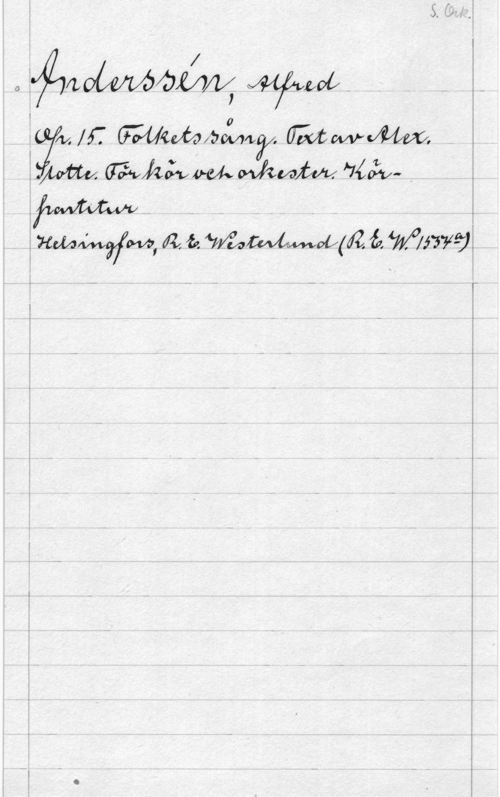 S. Ork.
Anderssén, Alfred
Op. 15. Folkets sång. Text av Alex.
Slotte. För kör och orkester. Kör-
partitur
Helsingfors, R. E. Westerlund (R. E. W. 1554a)